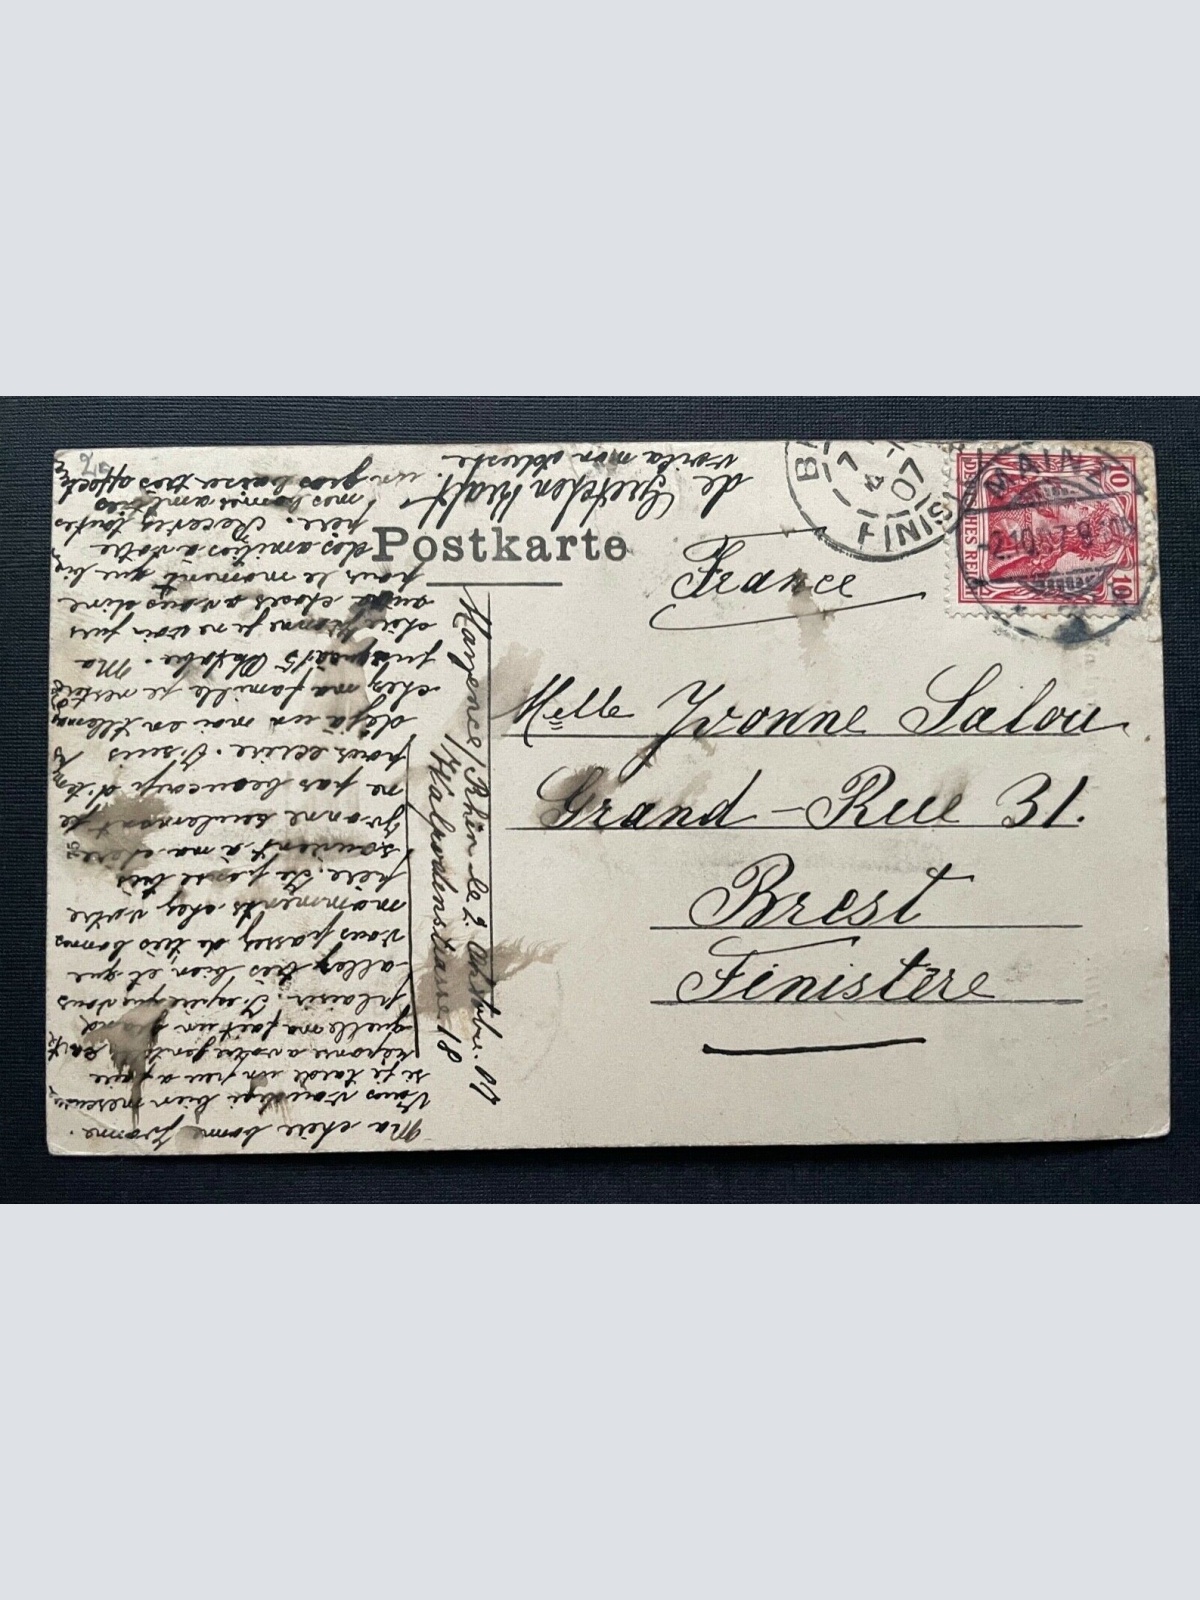 Postkarte
France
Melle Yvonne Salou
Grand-Rue 31.
Brest
Finistère
FINIS
07
MAINZ
-2.10.07.9-10N
DEUTSCHES REICH
10
10
Mayence/Rhin le 2. Oktobre. 07
Walpodenstrasse 18
Ma chère bonne Yvonne.
Vous voudrez bien m'excuser
si je tarde un peu a
réponse a votre gentille carte
quelle ma fait un grand
plaisir. J'espère que vous
allez très bien et que
vous passez de très bonns
momments chez votre
père. Je pense très
souvent à ma chère
Yvonne seulement je
ne pas beaucoup d. temps
pour écrire. Je suis
déjà un moi en
chez ma famille je resterai
jusqu'aà 15 Oktobre. Ma
chère Yvonne je ne voir puis
autre choses a vous dire
pour le moment que
des amitiés a votre
père. Recevez toutes
mes bonnes amitiés
un gros baiser très affect
de Gretchen Kraft
voila mon adresse